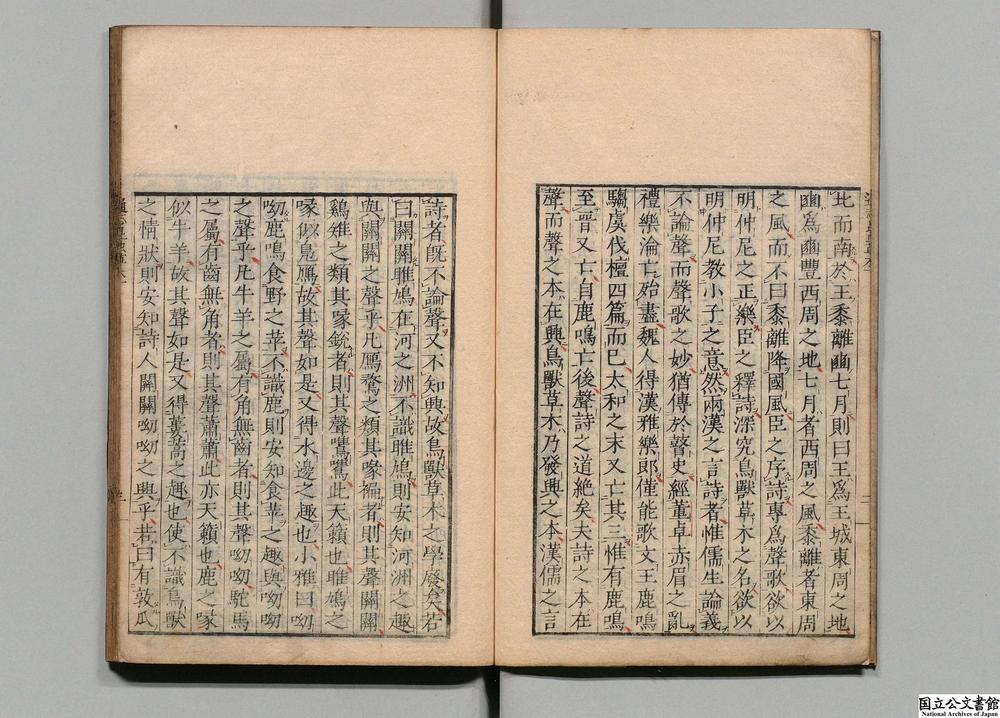 北而南於王黍離豳七月則曰王爲王城東周之地
豳爲豳豐西周之地七月者西周之風黍離者東周
之風而不曰黍離降國風臣之序詩專爲聲歌欲以
明仲尼之正樂臣之釋詩深究鳥獸草木之名欲以
明仲尼教小子之意然兩漢之言詩者惟儒生論義
不論聲而聲歌之妙猶傳於瞽史經董卓赤眉之亂
禮樂淪亡殆盡魏人得漢雅樂郎僅能歌文王鹿鳴
騶虞伐檀四篇而已太和之末又亡其三惟有鹿鳴
至晉又亡自鹿鳴亡後聲詩之道絶矣夫詩之本在
聲而聲之本在興鳥獸草木乃發興之本漢儒之言
詩者旣不論聲又不知興故鳥獸草木之學廢矣若
曰關關雎鳩在河之洲不識雎鳩則安知河洲之趣
與關關之聲乎凡鴈鶩之類其喙褊者則其聲關關
鷄雉之類其喙銳者則其聲鷕鷕此天籟也雎鳩之
喙似鳧鴈故其聲如是又得水邊之趣也小雅曰呦
呦鹿鳴食野之苹不識鹿則安知食苹之趣與呦呦
之聲乎凡牛羊之屬有角無齒者則其聲呦呦駝馬
之屬有齒無角者則其聲蕭蕭此亦天籟也鹿之喙
似牛羊故其聲如是又得蔞蒿之趣也使不識鳥獸
之情狀則安知詩人關關呦呦之興乎若曰有敦瓜
国立公文書館
National Archives of Japan